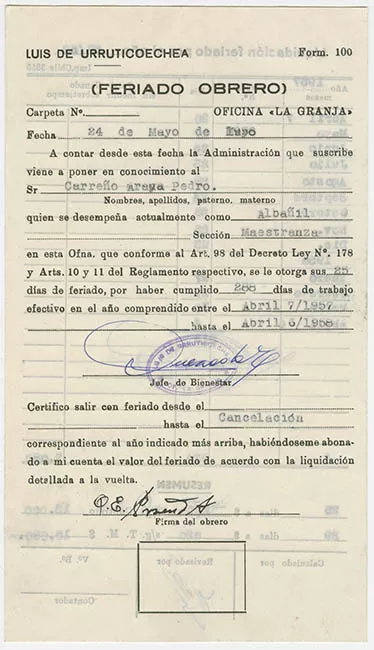 LUIS DE URRUTICOECHEA Form. 100
(FERIADO OBRERO)
Carpeta Nº. OFICINA «LA GRANJA»
Fecha 24 de Mayo de
A contar desde esta fecha la Administración que suscribe
viene a poner en conocimiento al
Sr Carreño Araya Pedro.
Nombres, apellidos, paterno, materno
quien se desempeña actualmente como Albañil
Sección Maestranza
en esta Ofna. que conforme al Art. 98 del Decreto Ley Nº. 178
y Arts. 10 y 11 del Reglamento respectivo, se le otorga sus 25
días de feriado, por haber cumplido 288 días de trabajo
efectivo en el año comprendido entre el Abril 7/1957
hasta el Abril 6/1958
Jefe de Bienestar
Certifico salir con feriado desde el
hasta el Cancelación
correspondiente al año indicado más arriba, habiéndoseme abona-
do a mi cuenta el valor del feriado de acuerdo con la liquidación
detllada a la vuelta.
Firma del obrero